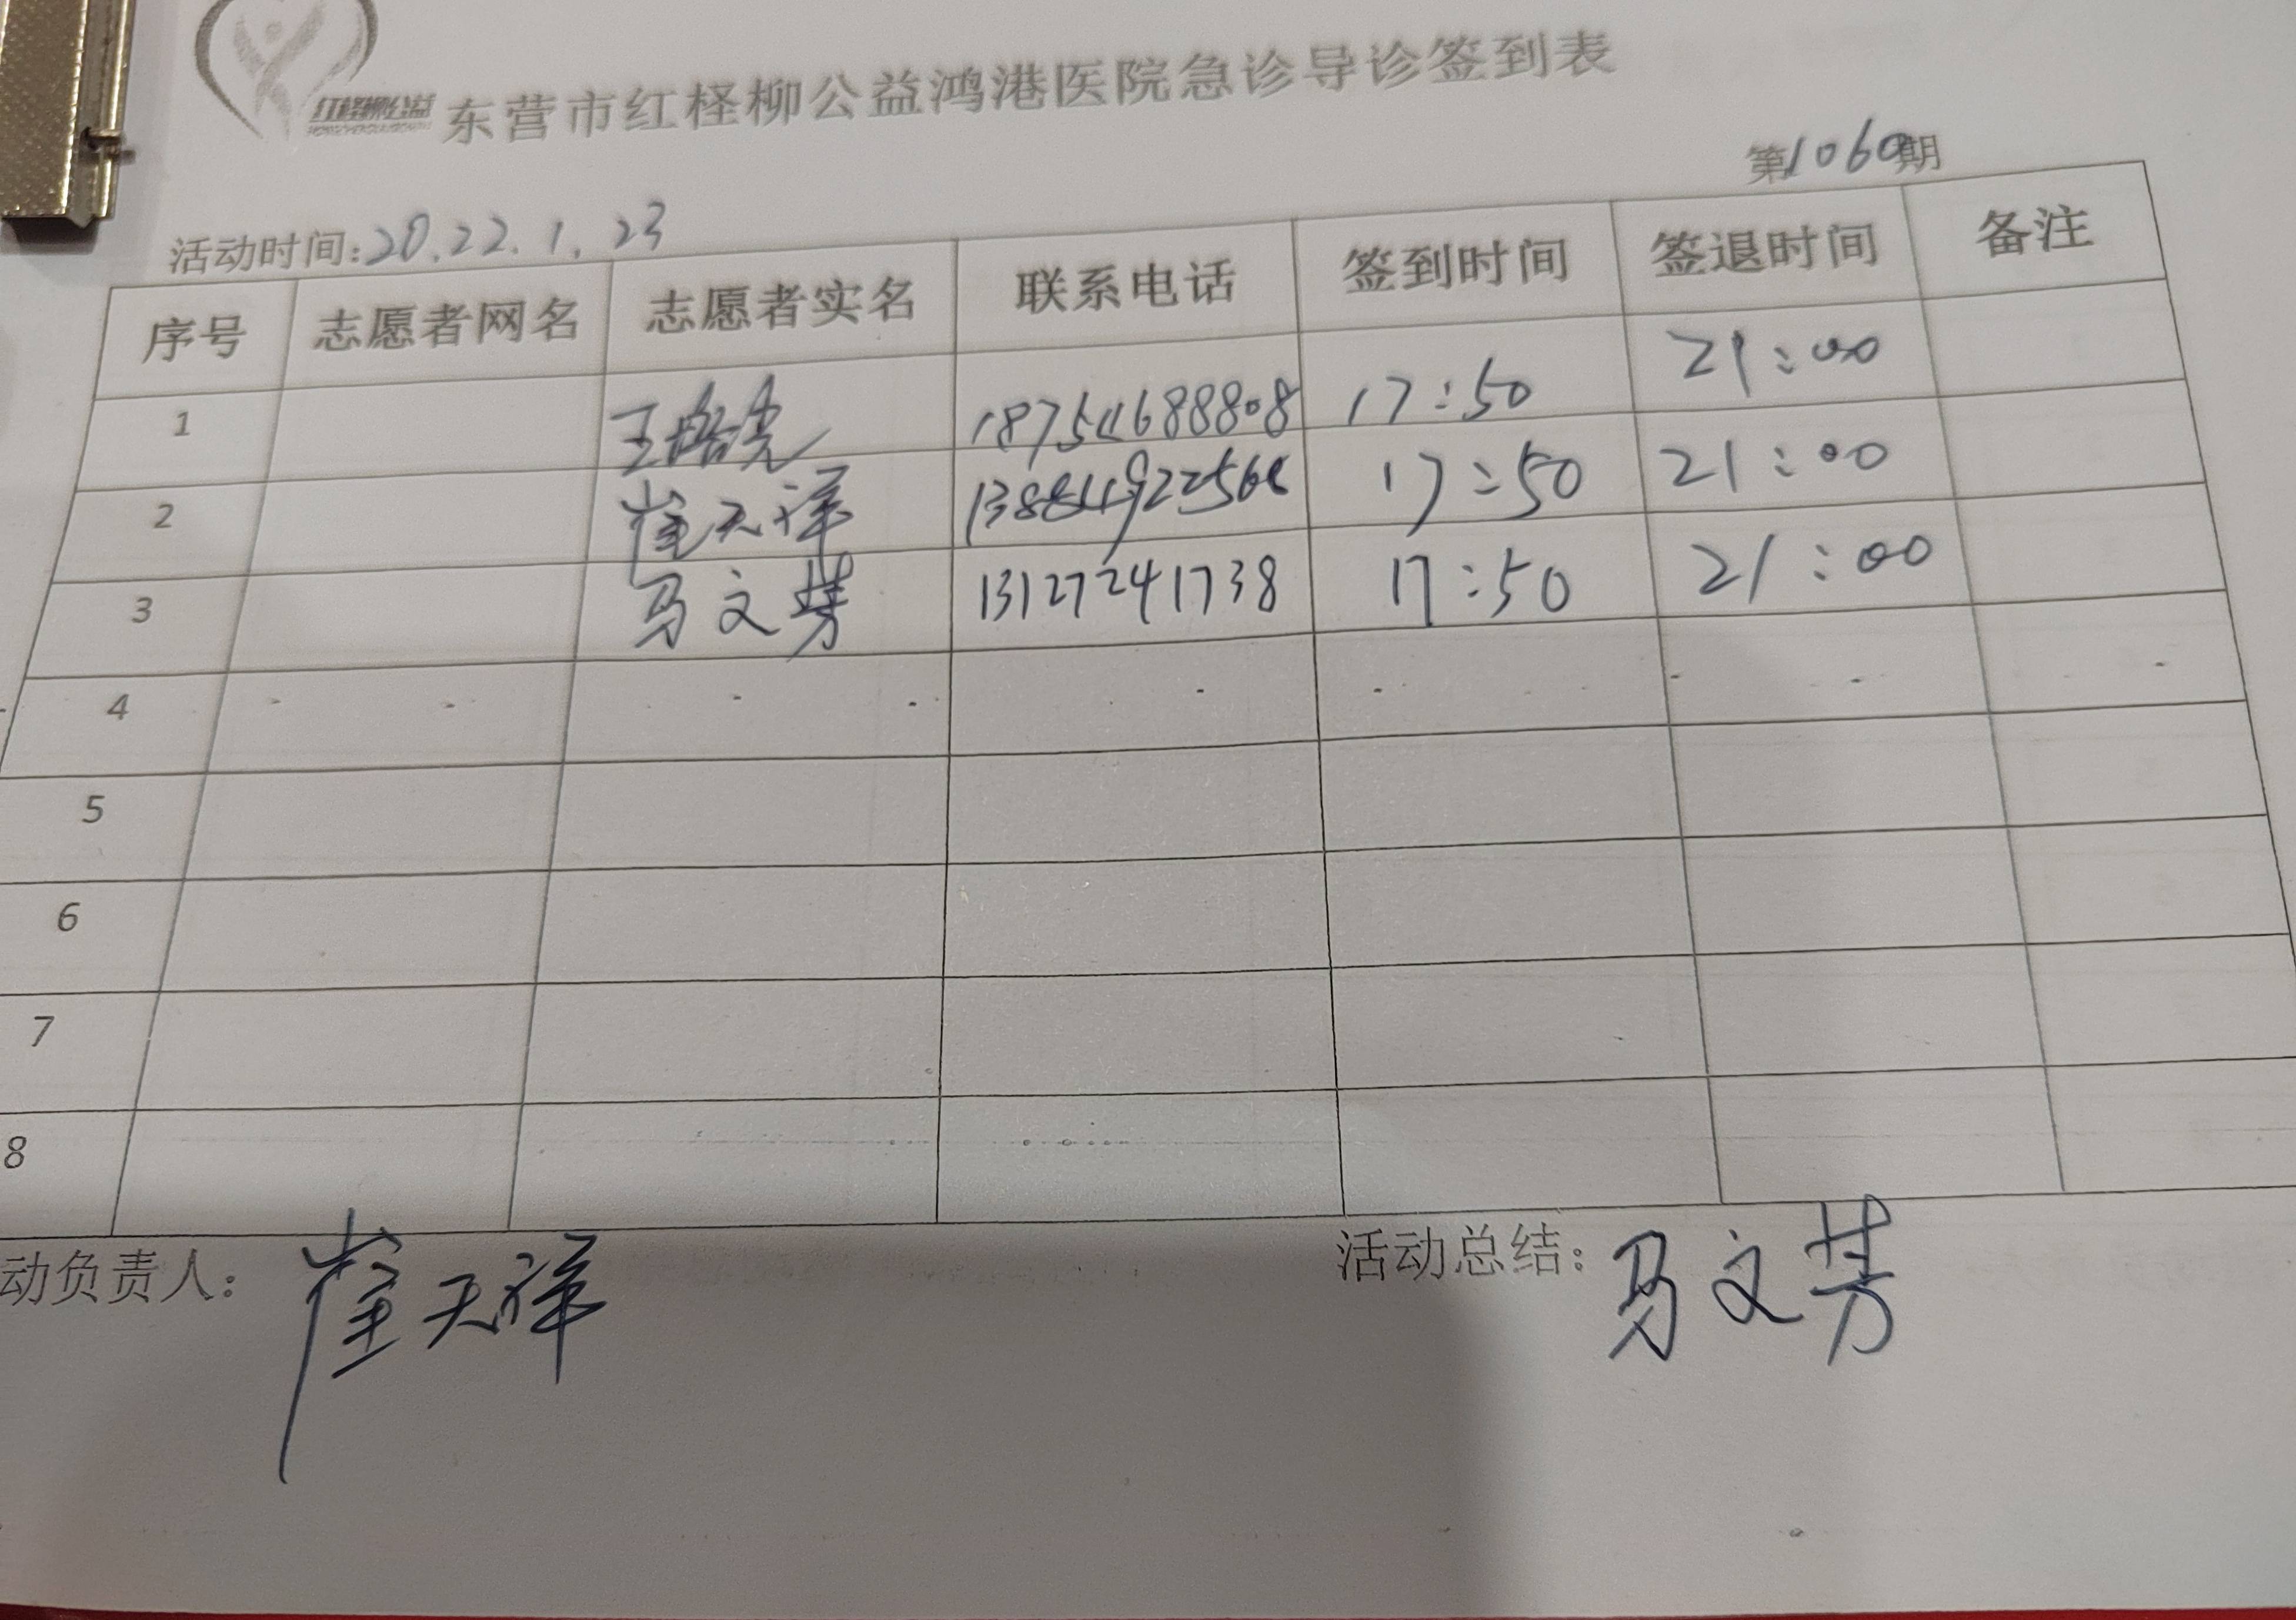 红柽柳公益
东营市红柽柳公益鸿港医院急诊导诊签到表
第1060期
活动时间:20.22.1.23
序号 志愿者网名 志愿者实名 联系电话 签到时间 签退时间 备注
1 18754688808 17:50 21:00
2 崔天祥 17:50 21:00
3 马文芳 13127241738 17:50 21:00
4
5
6
7
8
动负责人: 崔天祥 活动总结: 马文芳